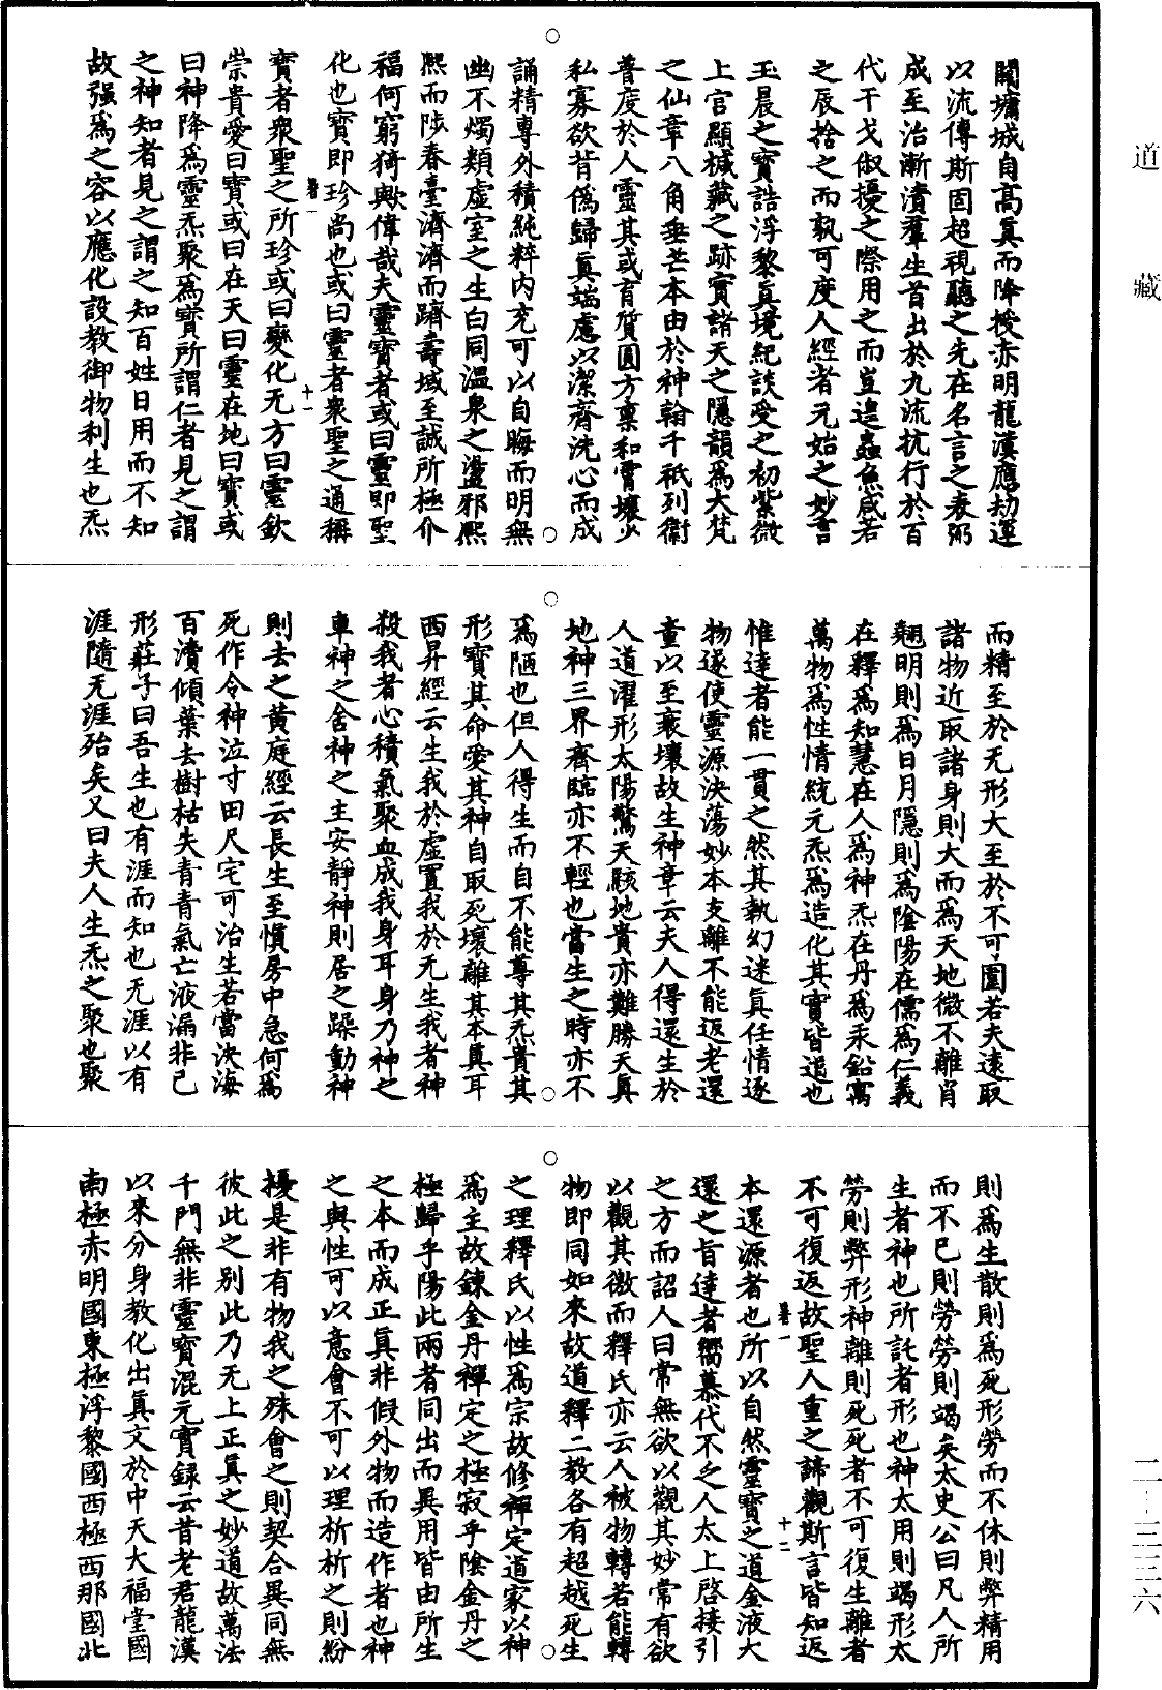 道藏
閬墉城自高眞而降授赤明龍漢應劫運
以流傳斯固超視聽之先在名言之表弼
成至治漸漬羣生首出於九流抗行於百
代干戈俶擾之際用之而豈遑蟲魚咸若
之辰捨之而孰可度人經者元始之妙言
玉晨之寶誥浮黎眞境紀談受之初紫微
上宮顯椷藏之跡實諸天之隱韻爲大梵
之仙章八角垂芒本由於神翰千衹列衞
普度於人靈其或有質圓方稟和霄壤少
私寡欲背僞歸眞端慮以潔齊洗心而成
誦精專外積純粹内充可以自晦而明無
幽不燭類虛室之生白同溫泉之盪邪熙
熙而陟春臺濟濟而躋壽域至誠所極介
福何窮猗歟偉哉夫靈寶者或曰靈即聖
化也寶即珍尚也或曰靈者衆聖之通稱
寶者衆聖之所珍或曰變化无方曰靈欽
崇貴愛曰寶或曰在天曰靈在地曰寶或
曰神降爲靈炁聚爲寶所謂仁者見之謂
之神知者見之謂之知百姓日用而不知
故强爲之容以應化設教御物利生也炁
而精至於无形大至於不可圍若夫遠取
諸物近取諸身則大而爲天地微不離肖
翹明則爲日月隱則爲陰陽在儒爲仁義
在釋爲知慧在人爲神炁在丹爲汞鉛寓
萬物爲性情統元炁爲造化其實皆道也
惟達者能一貫之然其執幻迷眞任情逐
物遂使靈源決蕩妙本支離不能返老還
童以至衰壞故生神章云夫人得還生於
人道濯形太陽驚天駭地貴亦難勝天眞
地神三界齊臨亦不輕也當生之時亦不
爲陋也但人得生而自不能尊其炁貴其
形寶其命愛其神自取死壞離其本眞耳
西昇經云生我於虛置我於无生我者神
殺我者心積氣聚血成我身耳身乃神之
車神之舍神之主安靜神則居之躁動神
則去之黄庭經云長生至愼房中急何爲
死作令神泣寸田尺宅可治生若當決海
百瀆傾葉去樹枯失青青氣亡液漏非己
形莊子曰吾生也有涯而知也无涯以有
涯隨无涯殆矣又曰夫人生炁之聚也聚
則爲生散則爲死形勞而不休則弊精用
而不已則勞勞則竭矣太史公曰凡人所
生者神也所託者形也神太用則竭形太
勞則弊形神離則死死者不可復生離者
不可復返故聖人重之諦觀斯言皆知返
本還源者也所以自然靈寶之道金液大
還之旨達者嚮慕代不乏人太上啓接引
之方而詔人曰常無欲以觀其妙常有欲
以觀其徼而釋氏亦云人被物轉若能轉
物即同如來故道釋二教各有超越死生
之理釋氏以性爲宗故修禪定道家以神
爲主故鍊金丹禪定之極寂乎陰金丹之
極歸乎陽此兩者同出而異用皆由所生
之本而成正眞非假外物而造作者也神
之與性可以意會不可以理析析之則紛
擾是非有物我之殊會之則契合異同無
彼此之別此乃无上正眞之妙道故萬法
千門無非靈寶混元實録云昔老君龍漢
以來分身教化出眞文於中天大福堂國
南極赤明國東極浮黎國西極西那國北
二-三三六